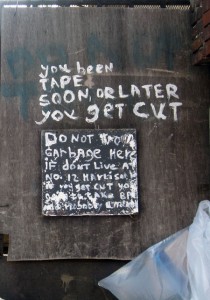 you been
TAPE
SOON, OR LATER
you get CUT
DO NOT THROW
GARBAGE HERE
IF DONT LIVE AT
NO. 12 HARRISON
IF you get CUT YOU